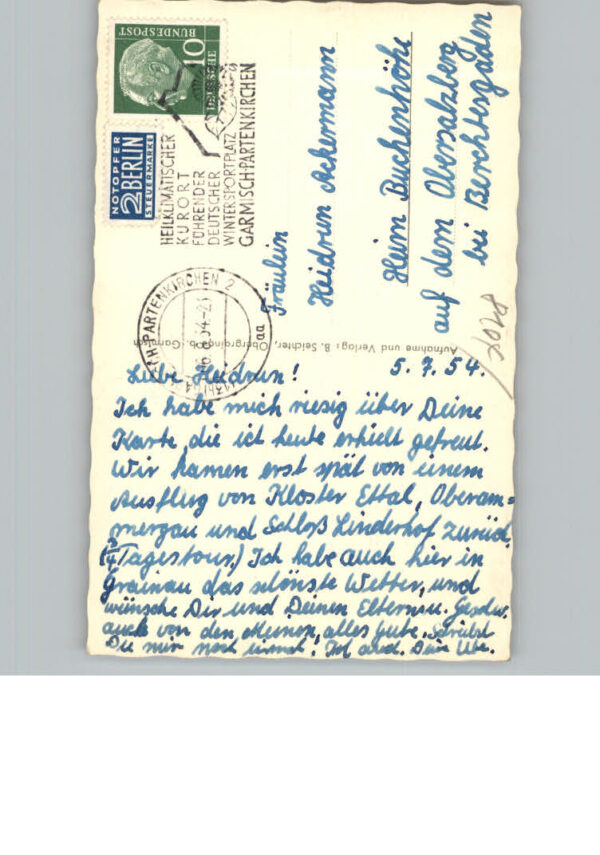 DEUTSCHE
BUNDESPOST
10
NOTOPFER
2 BERLIN
STEUERMARKE
HEILKLIMATISCHER
KURORT
FÜHRENDER
DEUTSCHER
WINTERSPORTPLATZ
GARMISCH-PARTENKIRCHEN
CH-PARTENKIRCHEN 2
aa
Fräulein
Heidrun Ackermann
Heim Buchenhöhe
auf dem Obersalzberg
bei Berchtesgaden
Aufnahme und Verlag: B. Seichter, Obergrainau ob. Garmisch
5. 7. 54.
Liebe Heidrun!
Ich habe mich riesig über Deine
Karte, die ich heute erhielt gefreut.
Wir kamen erst spät von einem
Ausflug von Kloster Ettal, Oberam=
mergau und Schloß Linderhof zurück.
Tagestour.) Ich habe auch hier in
Grainau das schönste Wetter, und
wünsche Dir und Deinen Eltern u. Geschw.
auch von den Meinen, alles Gute. Schreibst
Du mir noch einmal! Deine